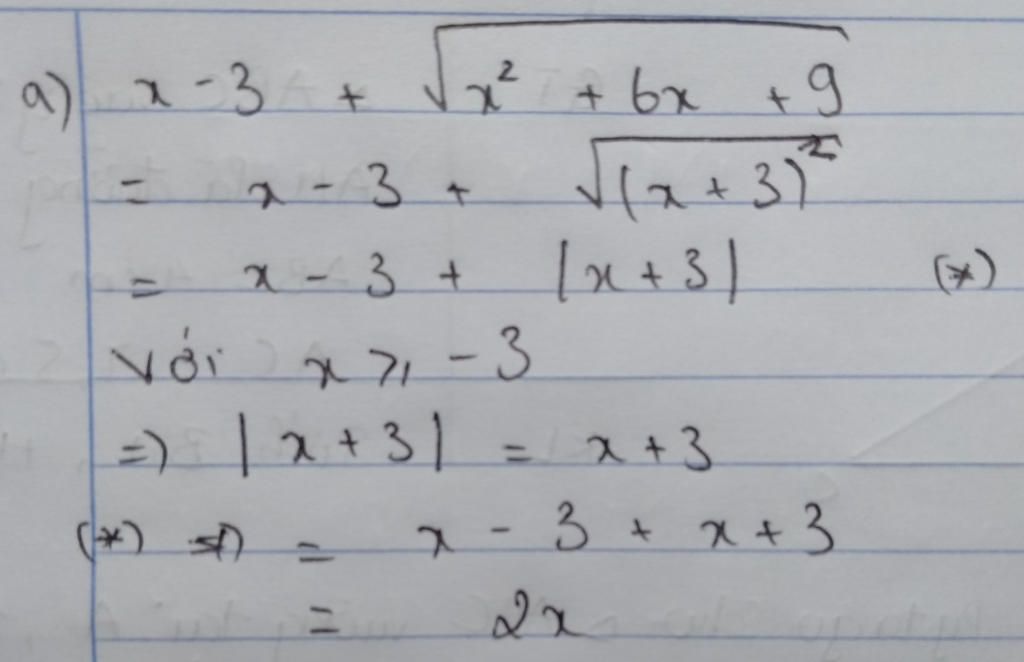 a) x - 3 + √(x² + 6x + 9)
= x - 3 + √((x + 3)²)
= x - 3 + |x + 3| (*)
với x ≥ -3
=> |x + 3| = x + 3
(*) = x - 3 + x + 3
= 2x